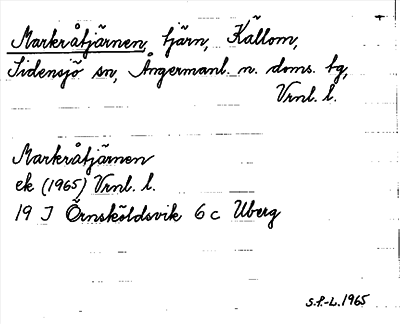 Markråtjärnen, tjärn, Källom,
Sidensjö sn, Ångermanl. n. doms. tg,
Vrnl. l.
Markråtjärnen
ek (1965) Vrnl. l.
19 J Örnsköldsvik 6 c Uberg
S.F.-L. 1965